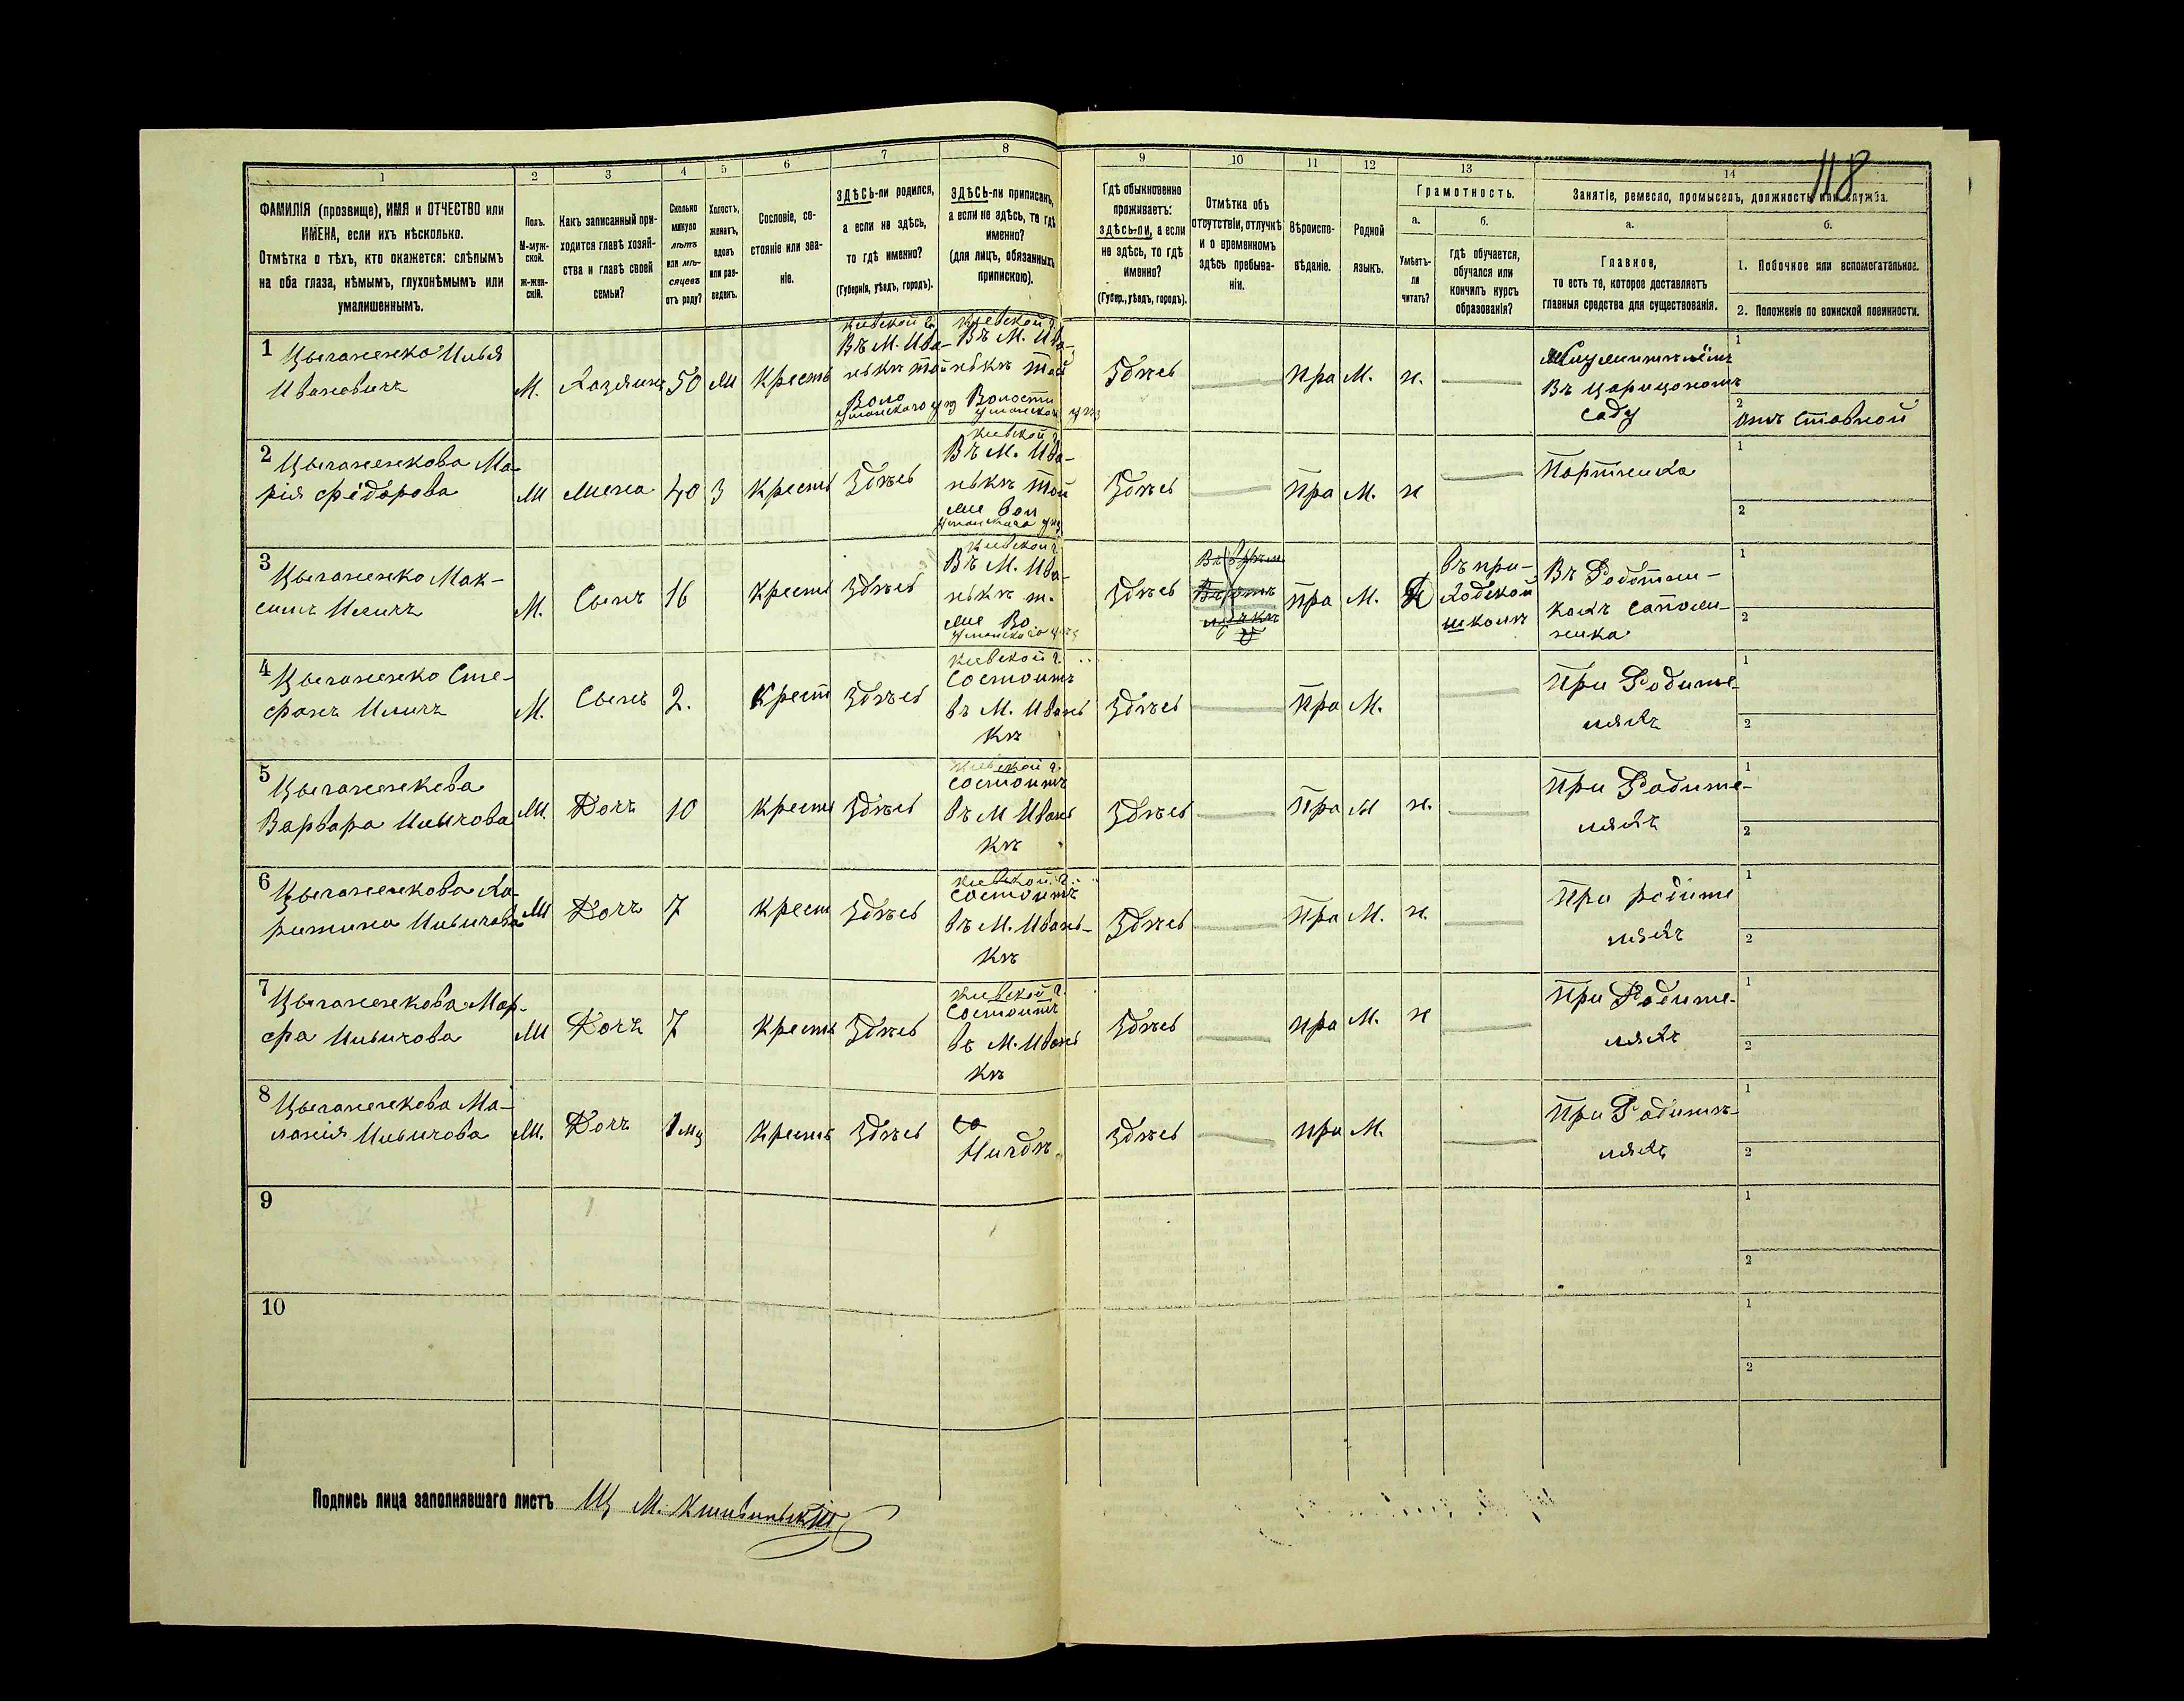 118
1
2
3
4
5
6
7
8
9
10
11
12
13
14
ФАМИЛІЯ (прозвище), ИМЯ и ОТЧЕСТВО или
ИМЕНА, если ихъ нѣсколько.
Отмѣтка о тѣхъ, кто окажется: слѣпымъ
на оба глаза, нѣмымъ, глухонѣмымъ или
умалишеннымъ.
Полъ.
М-муж-
ской.
Ж-жен-
скій.
Какъ записанный при-
ходится главѣ хозяй-
ства и главѣ своей
семьи?
Сколько
минуло
лѣтъ
или мѣ-
сяцевъ
отъ роду?
Холостъ,
женатъ,
вдовъ
или раз-
веденъ.
Сословіе, со-
стояніе или зва-
ніе.
ЗДѢСЬ-ли родился,
а если не здѣсь,
то гдѣ именно?
(Губернія, уѣздъ, городъ).
ЗДѢСЬ-ли приписанъ,
а если не здѣсь, то гдѣ
именно?
(для лицъ, обязанныхъ
припискою).
Гдѣ обыкновенно
проживаетъ:
здѣсь-ли, а если
не здѣсь, то гдѣ
именно?
(Губер., уѣздъ, городъ).
Отмѣтка объ
отсутствіи, отлучкѣ
и о временномъ
здѣсь пребыва-
ніи.
Вѣроиспо-
вѣданіе.
Родной
языкъ.
Грамотность.
а.
Умѣетъ-
ли
читать?
б.
Гдѣ обучается,
обучался или
кончилъ курсъ
образованія?
Занятіе, ремесло, промыселъ, должность или служба.
а.
Главное,
то есть то, которое доставляетъ
главныя средства для существованія.
б.
1. Побочное или вспомогательное.
2. Положеніе по воинской повинности.
1 Цыганенко Илья
Ивановичъ
М.
Хазяинъ
50
М
Крестъ
Кіевской г.
Въ М. Ива-
нькѣ той
Воло
Уманского у
Кіевской г.
Въ М. Ива-
нькѣ той
Волости
Уманской уѣз
Здѣсь
пра
М.
н.
Въ Царицономъ
саду
1
2
отъ ставной
2 Цыганенкова Ма-
рія Фёдорова
Ж
Жена
40
З
Крестъ
Здѣсь
Кіевской г.
Въ М. Ива-
нькѣ той
же вол
Уманскаго уѣз
Здѣсь
Пра
М.
н
Портниха
1
2
3 Цыганенко Мак-
симъ Иличъ
М.
Сынъ
16
Крестъ
Здѣсь
Кіевской г.
Въ М. Ива-
нькѣ т.
же Во
Уманскаго уѣз
Здѣсь
Пра
М.
въ при-
ходской
школѣ
Въ Роботни-
кахъ Сапож-
ника
1
2
4 Цыганенко Сте-
фанъ Иличъ
М.
Сынъ
2.
Крест
Здѣсь
Кіевской г.
Состоитъ
въ М. Ивань
кѣ
Здѣсь
Пра
М.
При Родите-
ляхъ
1
2
5 Цыганенкова
Варвара Ильичова
Ж.
Дочъ
10
Крестъ
Здѣсь
Кіевской г.
Состоитъ
въ М Ивань
кѣ
Здѣсь
Пра
М
н.
При Радите-
ляхъ
1
2
6 Цыганенкова Ха-
ритина Ильичова
Ж
Дочъ
7
Крест
Здѣсь
Кіевской г.
Состоитъ
въ М. Ивань-
кѣ
Здѣсь
Пра
М.
н.
При родите
ляхъ
1
2
7 Цыганенкова Мар-
фа Ильичова
Ж
Дочъ
7
Крестъ
Здѣсь
Кіевской г.
Состоитъ
въ М. Ивань
кѣ
Здѣсь
пра
М.
н
При Родите-
ляхъ
1
2
8 Цыганенкова Ма-
ланія Ильичова
Ж.
Дочъ
1 мц
Крестъ
Здѣсь
Нигдѣ
Здѣсь
пра
М.
При Радитѣ-
ляхъ
1
2
9
1
2
10
1
2
Подпись лица заполнявшаго листъ